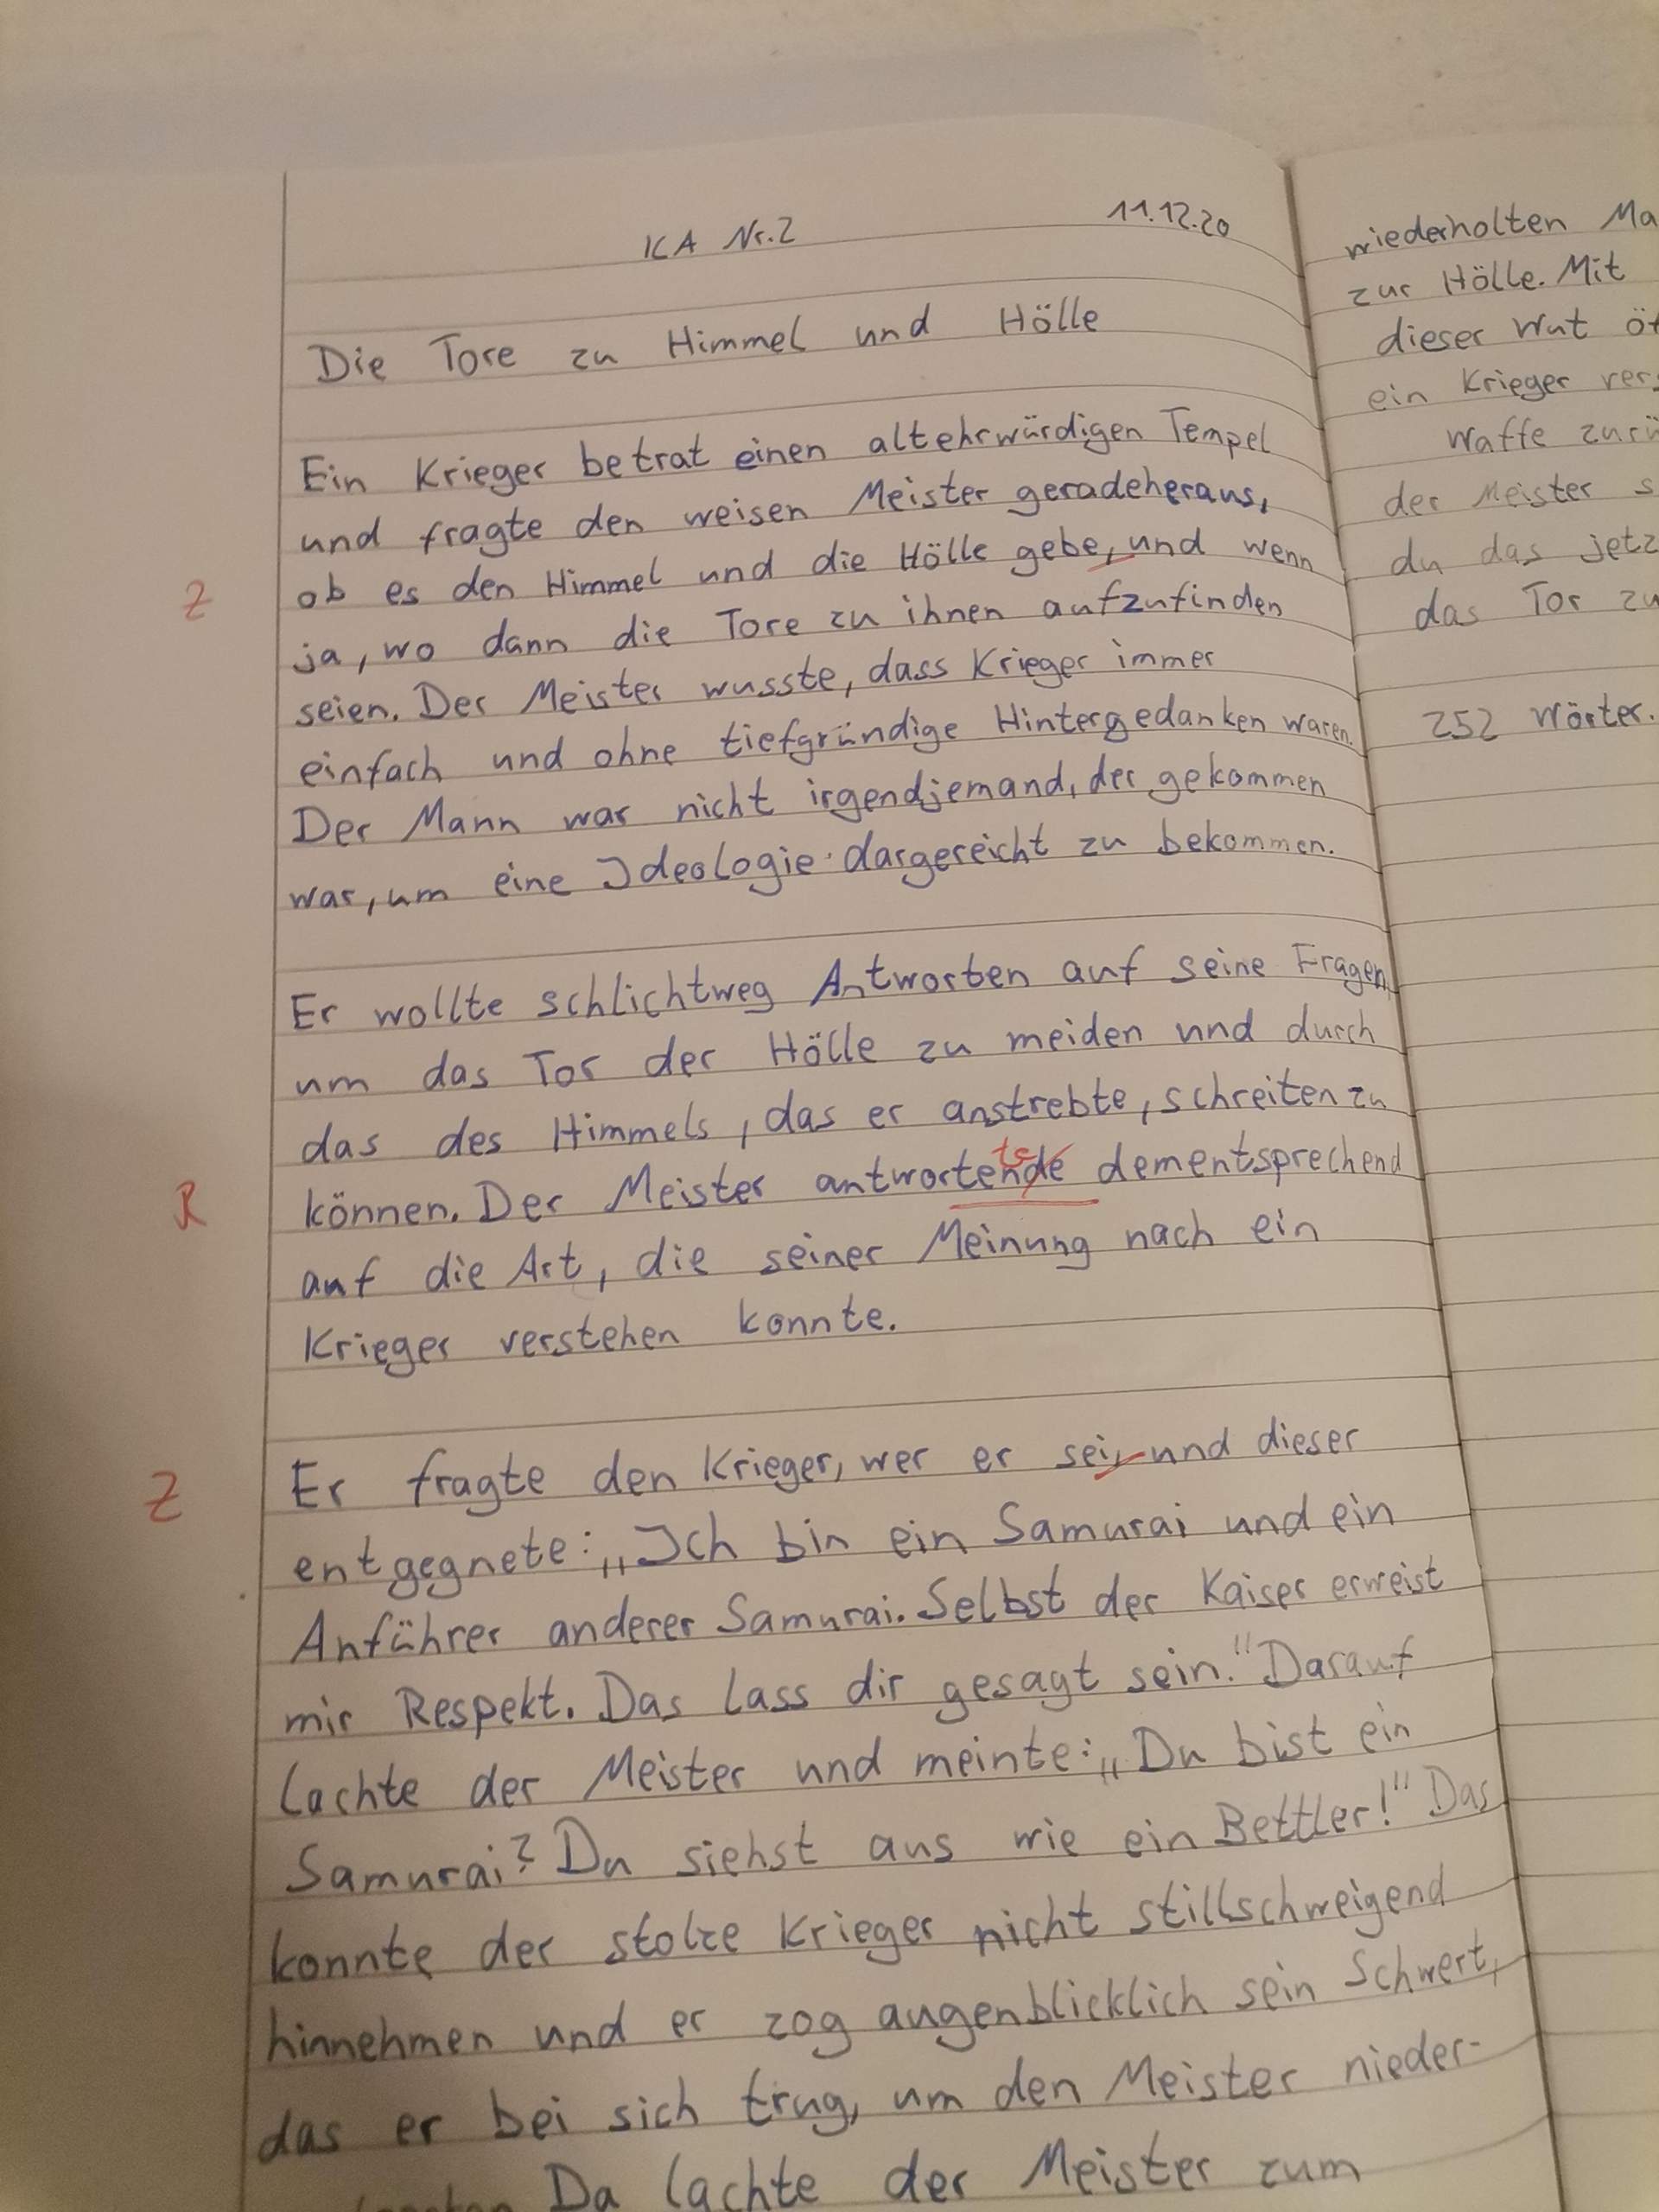 KA Nr. 2
11.12.20
Die Tore zu Himmel und Hölle
Ein Krieger betrat einen altehrwürdigen Tempel
und fragte den weisen Meister geradeheraus,
ob es den Himmel und die Hölle gebe, und wenn
Z
ja, wo dann die Tore zu ihnen aufzufinden
seien. Der Meister wusste, dass Krieger immer
einfach und ohne tiefgründige Hintergedanken waren.
Der Mann war nicht irgendjemand, der gekommen
war, um eine Ideologie dargereicht zu bekommen.
Er wollte schlichtweg Antworten auf seine Fragen,
um das Tor der Hölle zu meiden und durch
das des Himmels, das er anstrebte, schreiten zu
te
R
können. Der Meister antwortende dementsprechend
auf die Art, die seiner Meinung nach ein
Krieger verstehen konnte.
Z
Er fragte den Krieger, wer er sei, und dieser
entgegnete: „Ich bin ein Samurai und ein
Anführer anderer Samurai. Selbst der Kaiser erweist
mir Respekt. Das lass dir gesagt sein." Darauf
lachte der Meister und meinte: „Du bist ein
Samurai? Du siehst aus wie ein Bettler!" Das
konnte der stolze Krieger nicht stillschweigend
hinnehmen und er zog augenblicklich sein Schwert,
das er bei sich trug, um den Meister nieder-
Da lachte der Meister zum
wiederholten Ma
zur Hölle. Mit
dieser Wut öf
ein Krieger vers
Waffe zurü
der Meister s
du das jetz
das Tor zu
252 Wörter.